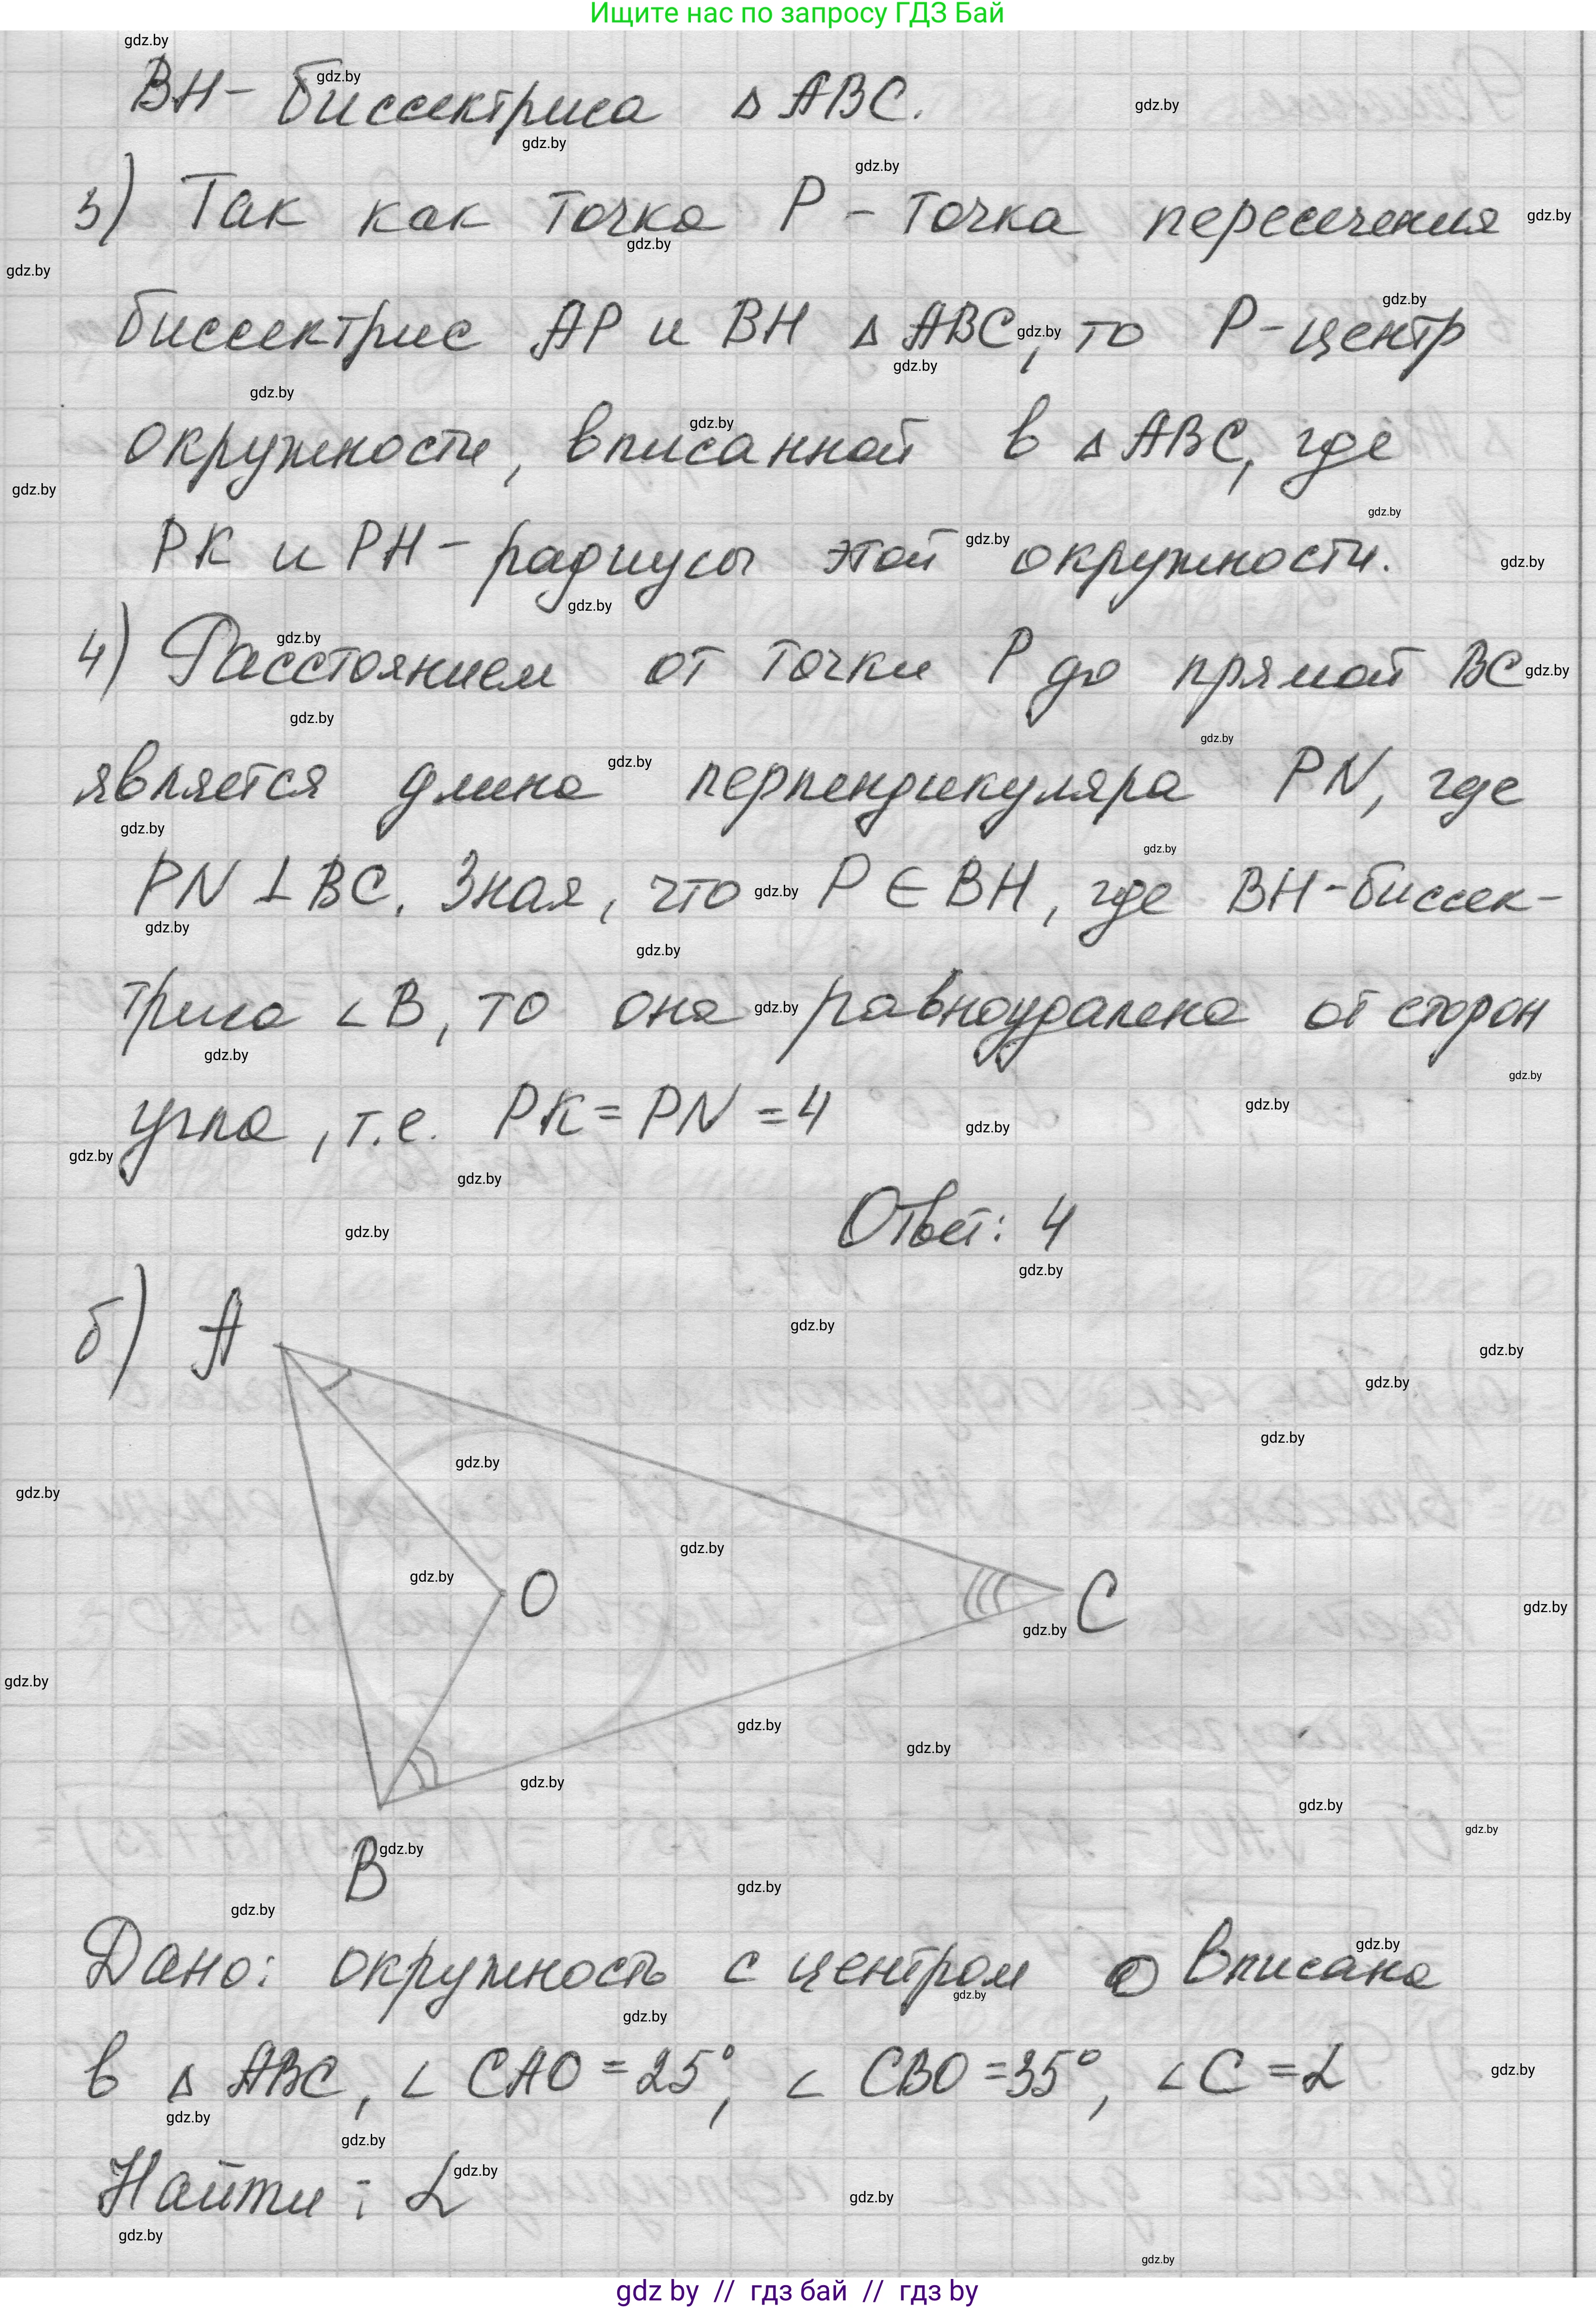 Ищите нас по запросу ГДЗ Бай
BH - биссектриса △ ABC.
3) Так как точка P - точка пересечения
биссектрис AP и BH △ ABC, то P - центр
окружности, вписанной в △ ABC, где
PK и PH - радиусы этой окружности.
4) Расстоянием от точки P до прямой BC
является длина перпендикуляра PN, где
PN ⊥ BC. Зная, что P ∈ BH, где BH - биссек-
триса ∠B, то она равноудалена от сторон
угла, т.е. PK = PN = 4
Ответ: 4
б) A
O
C
B
Дано: окружность с центром O вписана
в △ ABC, ∠ CAO = 25°, ∠ CBO = 35°, ∠C = α
Найти: α
gdz by // гдз бай // гдз by